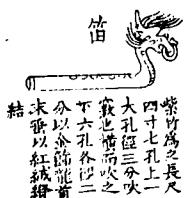 笛
紫竹為之長尺
四寸七孔上一
大孔徑三分吹
竅也橫而吹之
下六孔各徑二
分以金飾龍首
末垂以紅絨縧
結